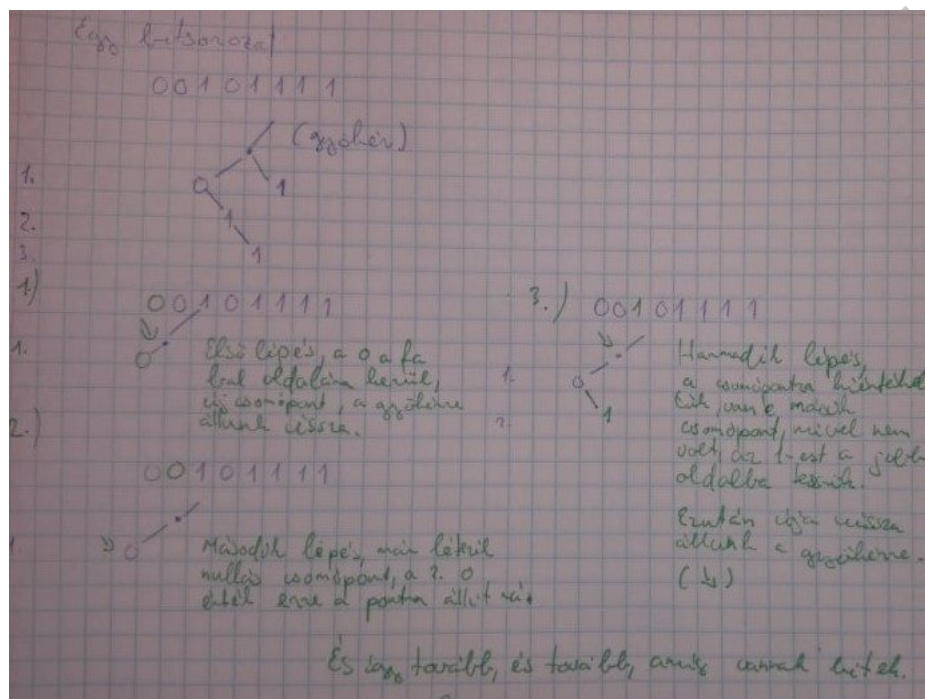 Egy bitsorozat
00101111
(gyökér)
1.
0 1
2.
1
3.
1
1)
00101111
1.
0
Első lépés, a 0 a fa
bal oldalára kerül,
új csomópont, a gyökérre
állunk vissza.
2.)
00101111
1.
0
Második lépés, már létezik
nullás csomópont, a 2. 0
érték erre a pontra állít rá.
3.)
00101111
1.
0
1
2.
Harmadik lépés,
a csomópontra
van e másik
csomópont, mivel nem
volt, az 1-est a jobb
oldalba tesszük.
Ezután újra vissza
állunk a gyökérre.
(↓)
És így tovább, és tovább, amíg vannak bitek.